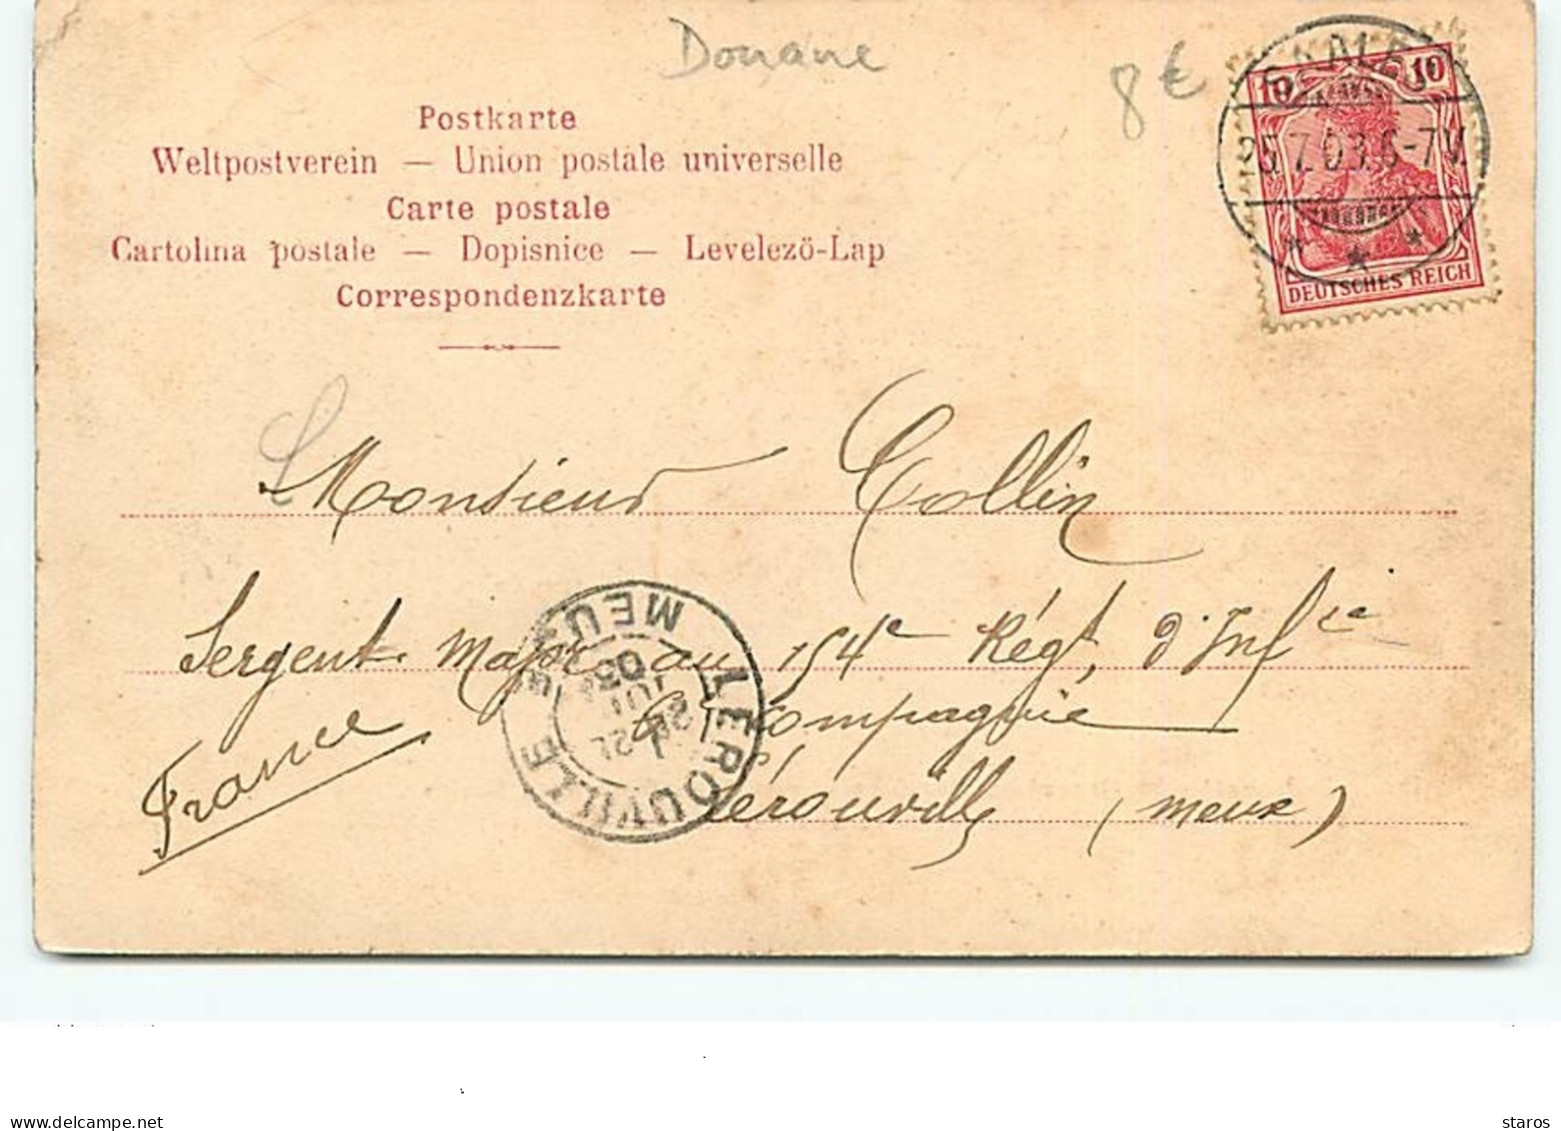 Douane
8 €
Postkarte
Weltpostverein — Union postale universelle
Carte postale
Cartolina postale — Dopisnice — Levelezö-Lap
Correspondenzkarte
10 10
5.7.03. 6-7V.
DEUTSCHES REICH
Monsieur Collin
Sergent Major au 154e Régt, d'Infie
Compagnie
Lérouville (Meuse)
France
LÉROUVILLE
MEUSE
03
staros